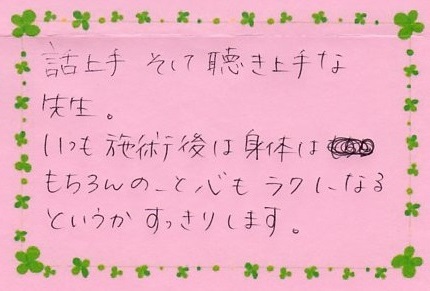 話上手 そして 聴き上手な
先生。
いつも 施術後は 身体は
もちろんのこと心も ラクになる
というか すっきりします。